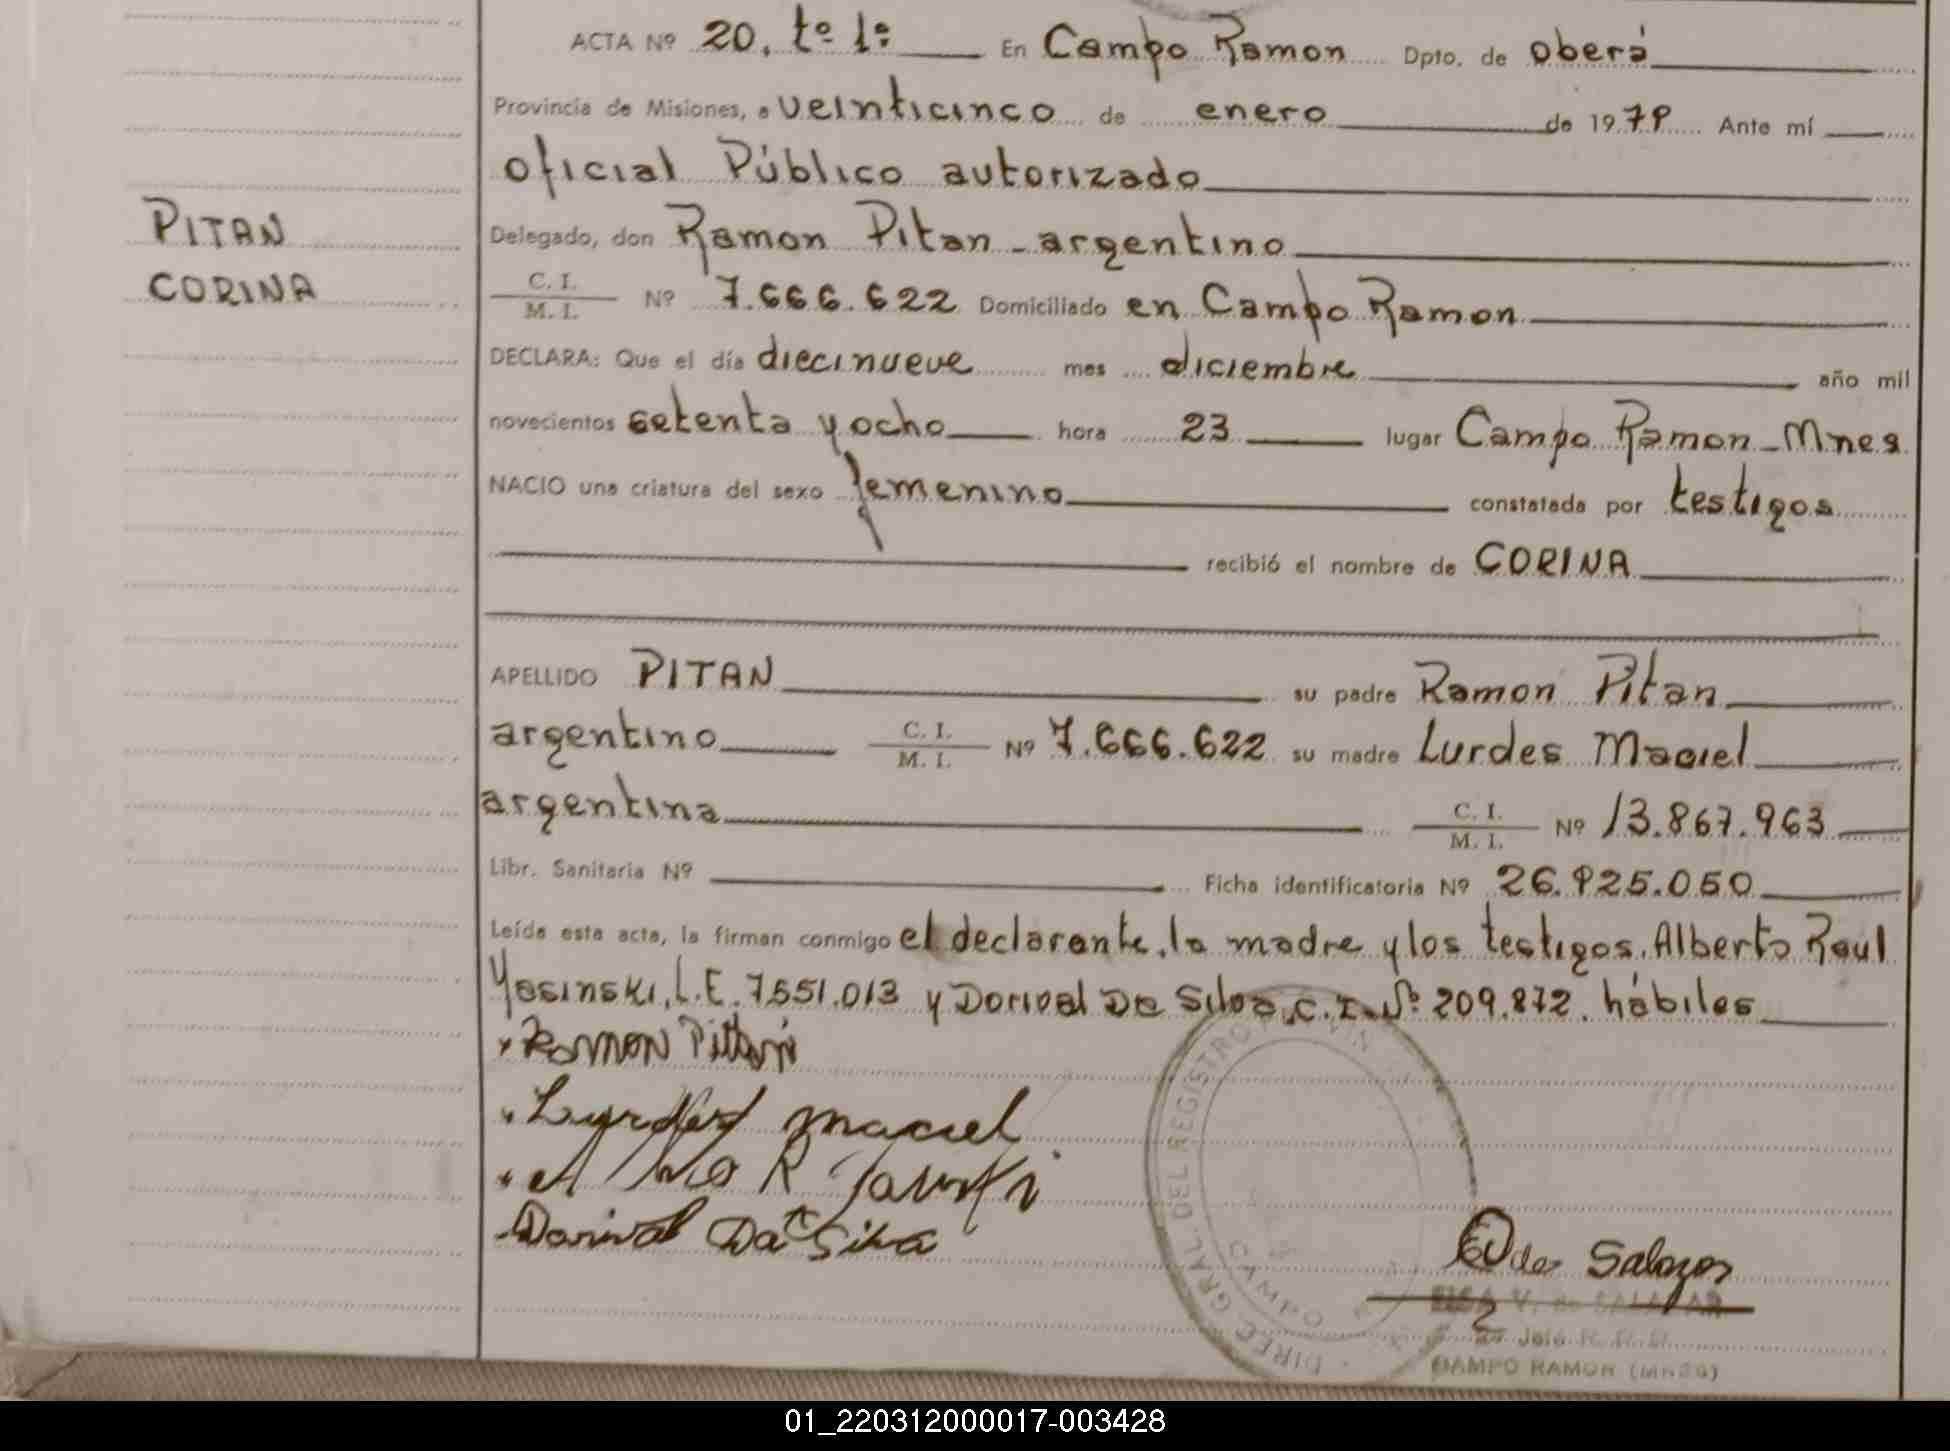 ACTA Nº 20. tº 1º En Campo Ramon Dpto. de oberá
Provincia de Misiones, a veinticinco de enero de 1979 Ante mí
oficial Público autorizado
PITAN
Delegado, don Ramon Pitan - argentino
CORINA
C. I. / M. I. Nº 7.666.622 Domiciliado en Campo Ramon
DECLARA: Que el día diecinueve mes diciembre año mil
novecientos setenta y ocho hora 23 lugar Campo Ramon - Mnes
NACIO una criatura del sexo femenino constatada por testigos
recibió el nombre de CORINA
APELLIDO PITAN su padre Ramon Pitan
argentino C. I. / M. I. Nº 7.666.622 su madre Lurdes Maciel
argentina C. I. / M. I. Nº 13.867.963
Libr. Sanitaria Nº Ficha identificatoria Nº 26.925.050
Leída esta acta, la firman conmigo el declarante, la madre y los testigos, Alberto Raul
Yasinski, L.E. 7551.013 y Dorival Da Silva, C.I. Nº 209.872. hábiles
Ramon Pittan
Lurdes Maciel
R
Dorival Da Silva
DIREC. GRAL. DEL REGISTRO
CAMPO
Salazar
ELSA V. de SALAZAR
CAMPO RAMON (MNES)
01_220312000017-003428